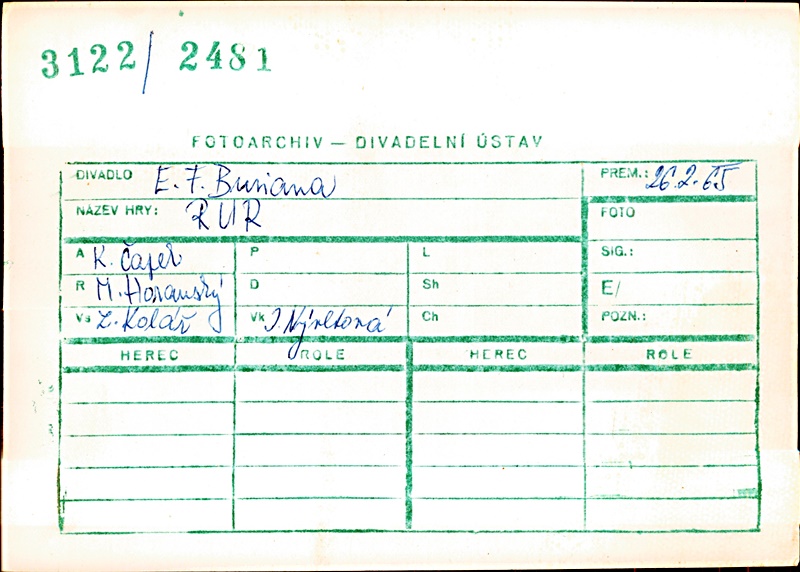 3122/2481
FOTOARCHIV — DIVADELNÍ ÚSTAV
DIVADLO E. F. Buriana PREM.: 26.2.65
NÁZEV HRY: RUR FOTO
A K. Čapek P L SIG.:
R M. Horanský D Sh E/
Vs Z. Kolář Vk J. Nývltová Ch POZN.:
HEREC ROLE HEREC ROLE